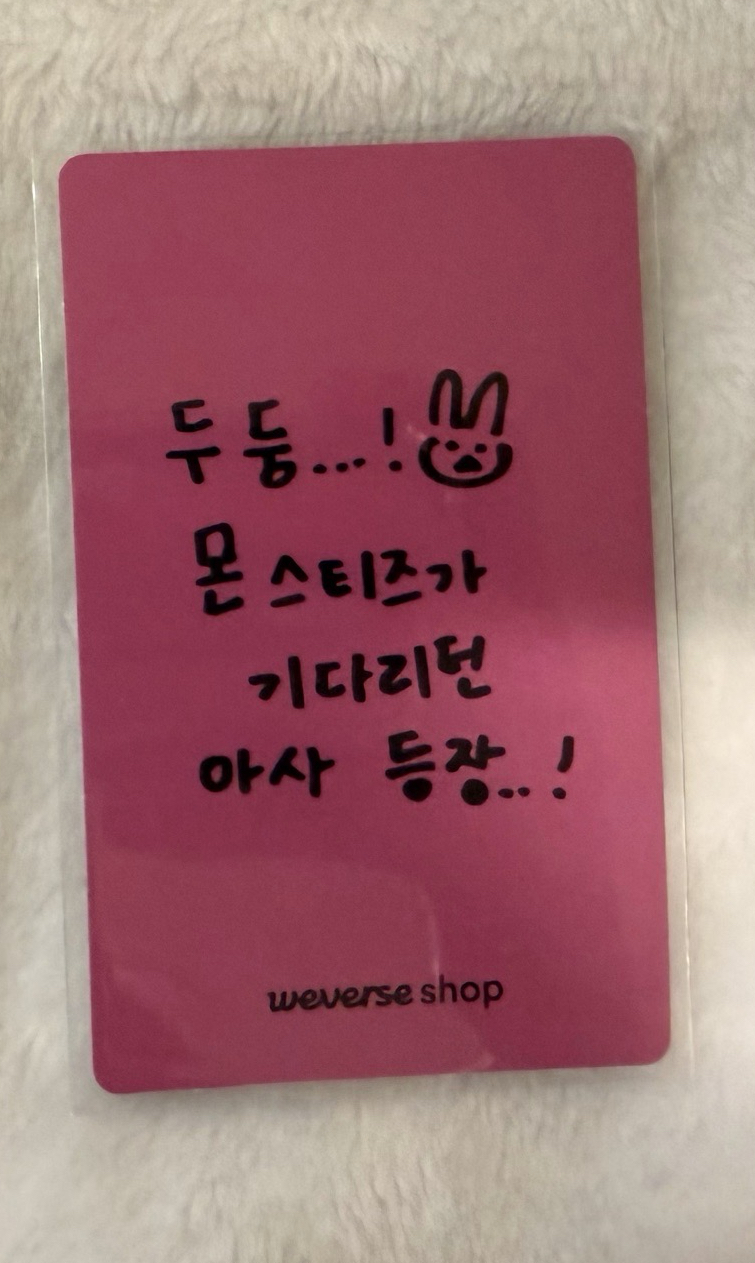 두둥...!
몬스티즈가
기다리던
아사 등장...!
weverse shop